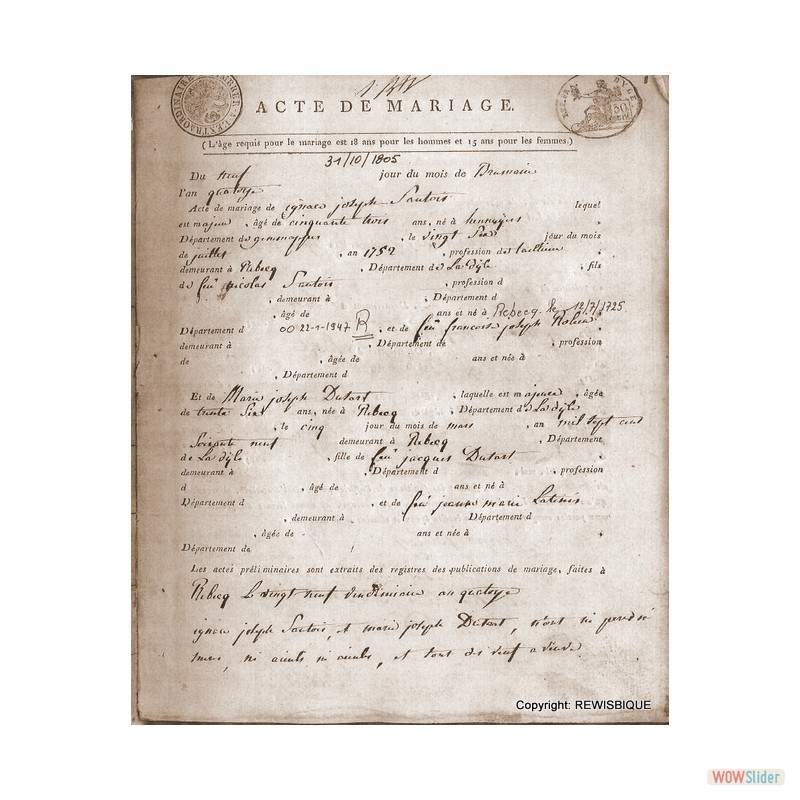 EXTRAORDINAIRE
DYLE
ACTE DE MARIAGE.
(L'âge requis pour le mariage est 18 ans pour les hommes et 15 ans pour les femmes.)
31/10/1805
Du neuf jour du mois de Brumaire
l'an quatorze
Acte de mariage de ignace joseph Sautois lequel
est majeur, âgé de cinquante trois ans, né à hennuyer,
Département de gemmappes, le vingt Six jour du mois
de juillet, an 1752, profession de tailleur,
demeurant à Rebecq, Département de La dyle, fils
de feu nicolas Sautois, profession d
, demeurant à, Département d
, âgé de ans et né à Rebecq. le 12/7/1725
Département d 00 22-1-1947 R, et de feu francoise joseph
demeurant à, Département de, profession
de, âgée de ans et née à
, Département d
Et de Marie joseph Dutart, laquelle est majeure, âgée
de trente Six ans, née à Rebecq, Département de La dyle
, le cinq jour du mois de mars, an mil sept cent
Soixante neuf demeurant à Rebecq, Département
de La dyle, fille de feu jacques Dutart
demeurant à, Département d, profession
d, âgé de ans et né à
Département d, et de feu jeanne marie
, demeurant à Département d
, âgée de ans et née à,
Département de
Les actes préliminaires sont extraits des registres des publications de mariage, faites à
Rebecq Le vingt neuf vendemiaire an quatorze
ignace joseph Sautois, et marie joseph Dutart, n'ont ni pere ni
mere, ni aieuls ni aieules, et tout des neuf
Copyright: REWISBIQUE
WOWSlider